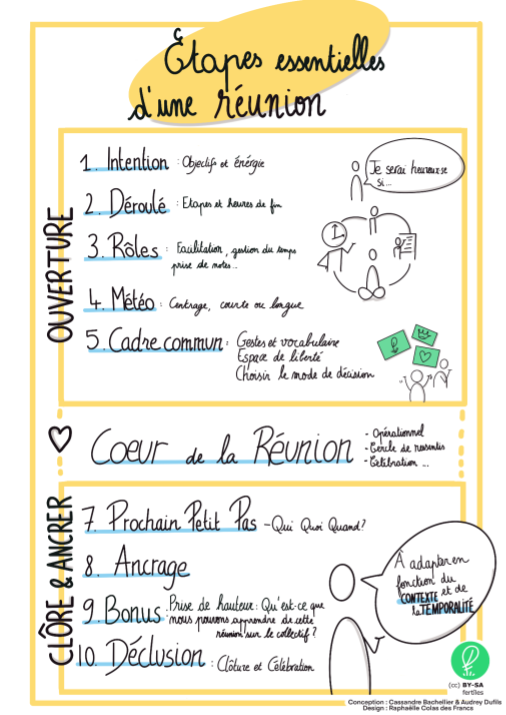 Étapes essentielles
d'une réunion
OUVERTURE
1. Intention : Objectifs et énergie
2. Déroulé : Etapes et heures de fin
3. Rôles : Facilitation, gestion du temps
prise de notes..
4. Météo : Centrage, courte ou longue
5. Cadre commun : Gestes et vocabulaire
Espace de liberté
Choisir le mode de décision
Je serai heureux·se
si...
Coeur de la Réunion
- Opérationnel
- Cercle de ressentis
- Célébration ...
CLÔRE & ANCRER
7. Prochain Petit Pas - Qui Quoi Quand?
8. Ancrage
9. Bonus : Prise de hauteur : Qu'est-ce que
nous pouvons apprendre de cette
réunion sur le collectif ?
10. Déclusion : Clôture et Célébration
À adapter en
fonction du
CONTEXTE et de
la TEMPORALITÉ
(cc) BY-SA
fertiles
Conception : Cassandre Bachellier & Audrey Dufils
Design : Raphaëlle Colas des Francs